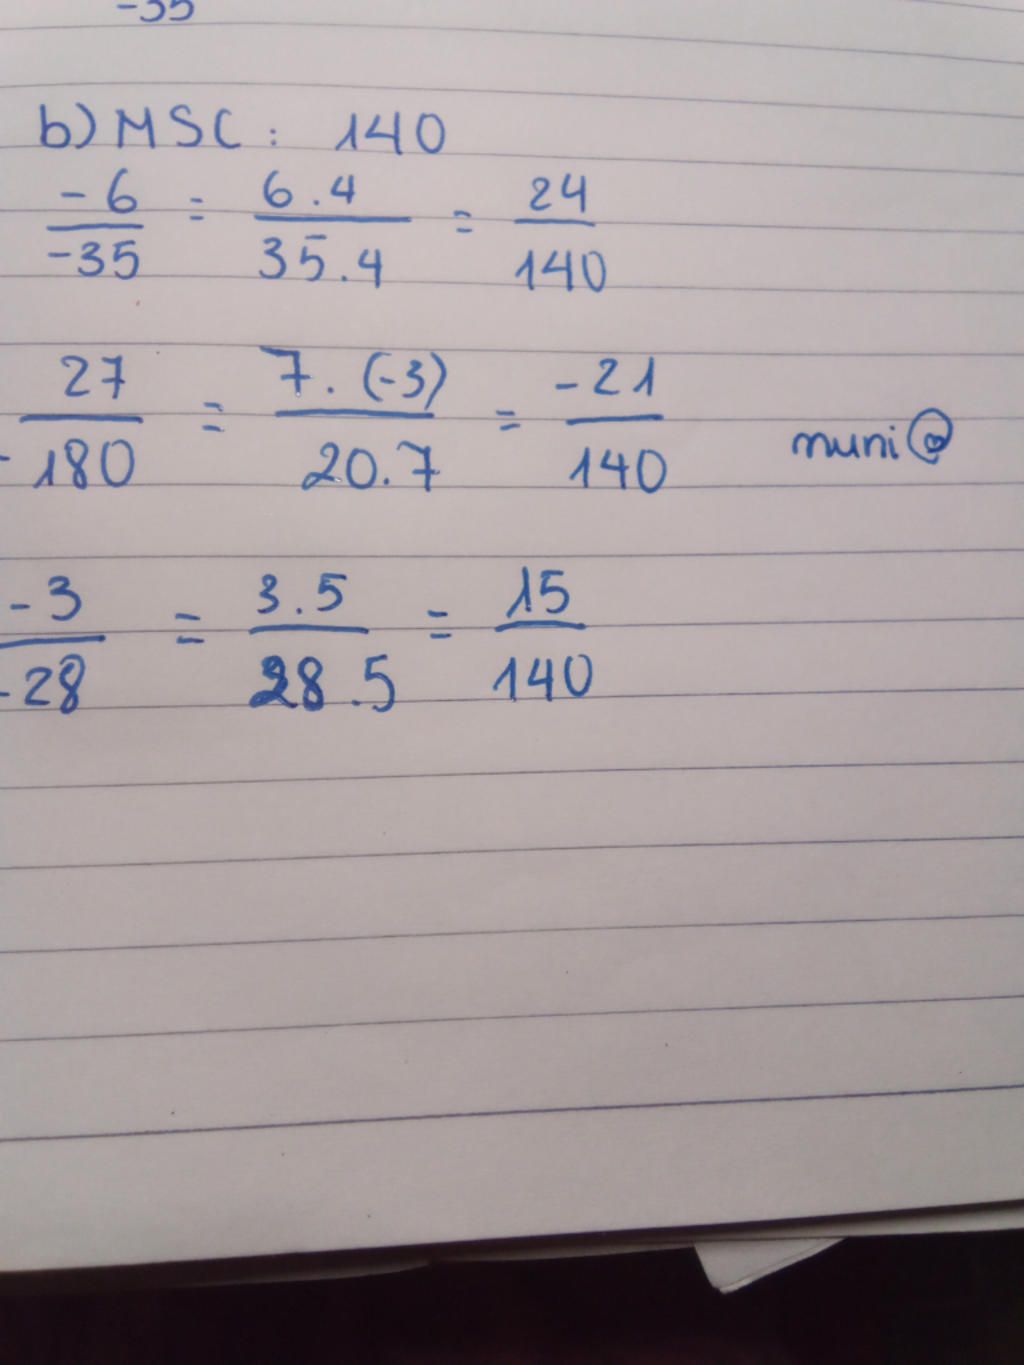 -35
b) MSC: 140
-6/-35 = 6.4/35.4 = 24/140
27/-180 = 7.(-3)/20.7 = -21/140
muni@
-3/-28 = 3.5/28.5 = 15/140